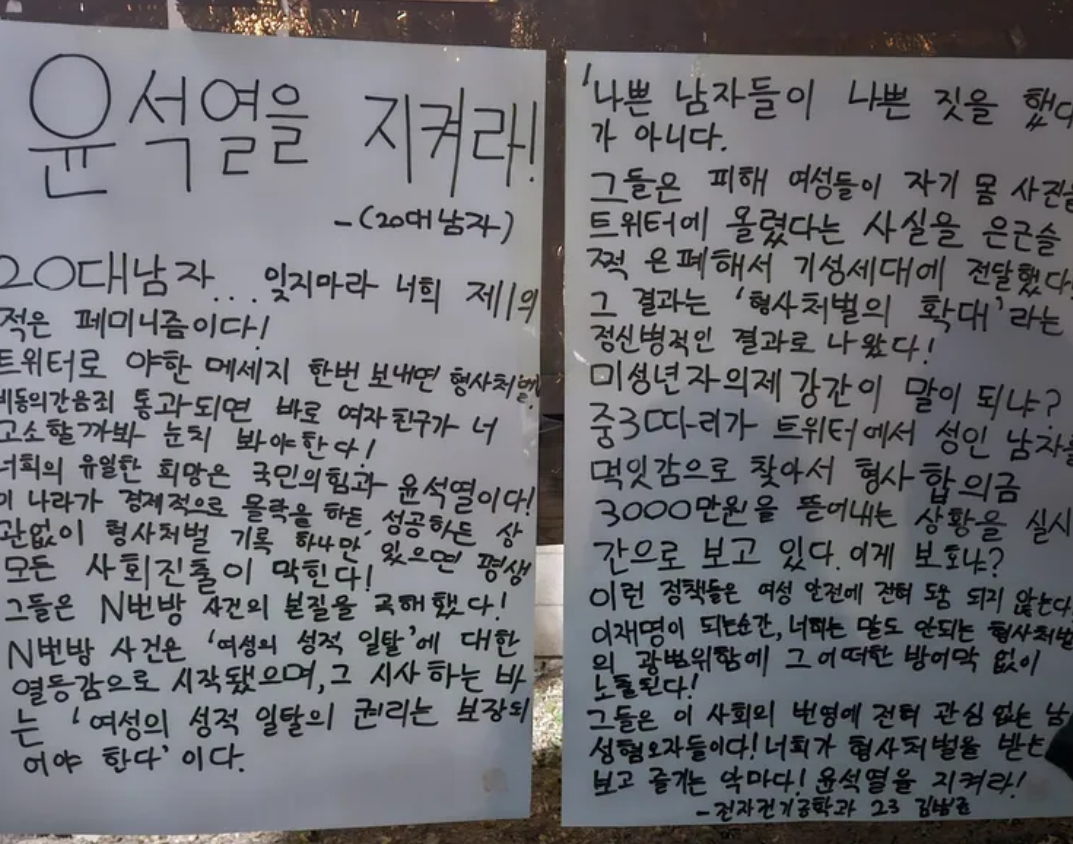 윤석열을 지켜라!
-(20대 남자)
20대남자... 잊지마라 너희 제1의
적은 페미니즘이다!
트위터로 야한 메세지 한번 보내면 형사처벌!
비동의간음죄 통과되면 바로 여자친구가 너
고소할까봐 눈치 봐야한다!
너희의 유일한 희망은 국민의힘과 윤석열이다!
이 나라가 경제적으로 몰락을 하든, 성공하든 상
관없이 형사처벌 기록 하나만 있으면 평생
모든 사회진출이 막힌다!
그들은 N번방 사건의 본질을 곡해했다!
N번방 사건은 '여성의 성적 일탈'에 대한
열등감으로 시작됐으며, 그 시사 하는 바
는 '여성의 성적 일탈의 권리는 보장되
어야 한다'이다.
'나쁜 남자들이 나쁜 짓을 했다
가 아니다.
그들은 피해 여성들이 자기 몸 사진을
트위터에 올렸다는 사실을 은근슬
쩍 은폐해서 기성세대에 전달했다!
그 결과는 '형사처벌의 확대'라는
정신병적인 결과로 나왔다!
미성년자의제강간이 말이 되냐?
중3따리가 트위터에서 성인 남자를
먹잇감으로 찾아서 형사 합의금
3000만원을 뜯어내는 상황을 실시
간으로 보고 있다. 이게 보호냐?
이런 정책들은 여성 안전에 전혀 도움 되지 않는다
이재명이 되는순간, 너희는 말도 안되는 형사처벌
의 광범위함에 그 어떠한 방어막 없이
노출된다!
그들은 이 사회의 번영에 전혀 관심 없는 남
성혐오자들이다! 너희가 형사처벌을 받는
보고 즐기는 악마다! 윤석열을 지켜라!
-전자전기공학과 23 김범준